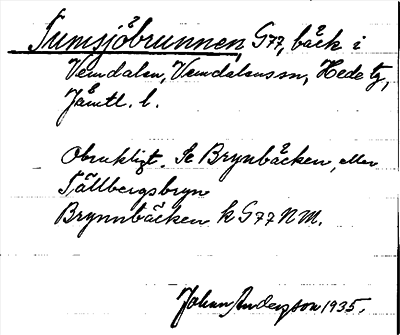 Tumsjöbrunnen, G77, bäck i
Vemdalen, Vemdalens sn, Hede tg,
Jämtl. l.
Obrukligt. Se Brynbäcken, eller
Tällbergsbryn
Brynnbäcken k G77 NM.
Johan Andersson 1935.